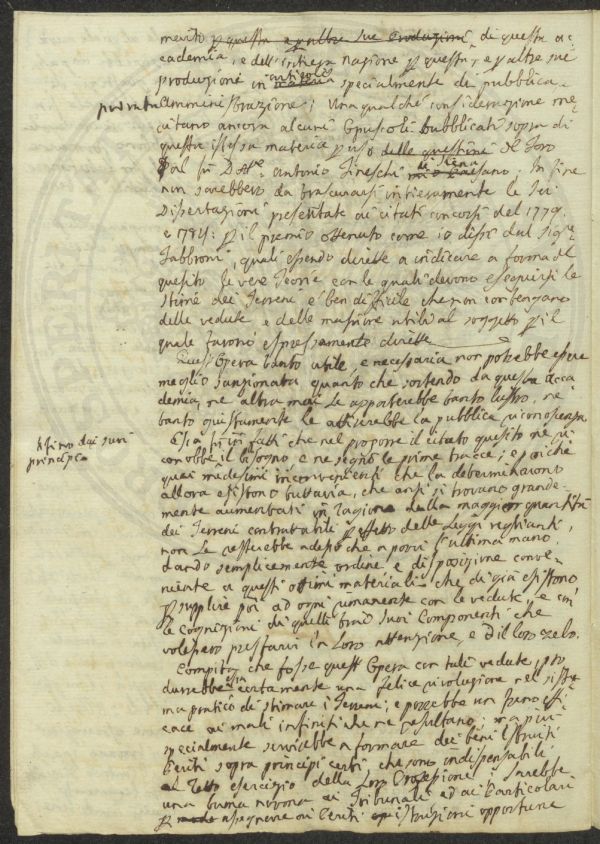 merito p questa e p altre sue produzioni di questa ac=
cademia, e dell'intiera nazione p questa, e p altre sue
produzioni in materia articoli specialmente di pubblica
privata
Amministrazione; Una qualche considerazione me=
ritano ancora alcuni Opuscoli pubblicati sopra di
questa istessa materia p uso delle questioni di loro
dal fu Dott.re Antonio Fineschi di Siena; In fine
non sarebbero da trascurarsi intieramente le
Dissertazioni presentate ai citati concorsi del 1779.
e 1781: p il premio ottenuto come io dissi dal Sig.re
Fabbroni, quali essendo dirette a indicare a forma del
quesito le vere Teorie con le quali devono eseguirsi le
stime dei Terreni è ben difficile che non contengano
delle vedute, e delle massime utili al soggetto p il
quale furono espressamente dirette
Quest'Opera tanto utile, e necessaria non potrebbe essere
meglio sanzionata quanto che sortendo da questa Acca
demia; ne altra mai le apporterebbe tanto lustro, ne
tanto giustamente le attirerebbe la pubblica riconoscenza
fino dai suoi
principj
Essa fu infatti che nel proporre il citato quesito ne ri
conobbe il bisogno e ne segnò le prime tracce; e poichè
quei medesimi inconvenienti che la determinarono
allora esistono tuttavia, che anzi si trovano grande=
mente aumentati in ragione della maggior quantità
dei Terreni contrattabili p effetto delle Leggi veglianti,
non le resterebbe adesso che a porvi l'ultima mano
dando semplicemente ordine e disposizione conve=
niente a questi ottimi materiali che di già esistono
p supplire poi ad ogni rimanente con le vedute, e con
le cognizioni di quelli tra i suoi Componenti che
volessero prestarvi la loro attenzione, e il loro zelo.
Compita che fosse quest'Opera con tali vedute pro
durrebbe essa certamente una felice rivoluzione nel siste=
ma pratico di stimare i Terreni; e porrebbe un freno effi
cace ai mali infiniti che ne resultano; ma più
specialmente servirebbe a formare dei beni istruiti
Periti sopra principj certi che sono indispensabili
al retto esercizio della loro Professione; Sarebbe
una buona norma ai Tribunali ed ai Particolari
p assegnare ai Periti istruzioni opportune